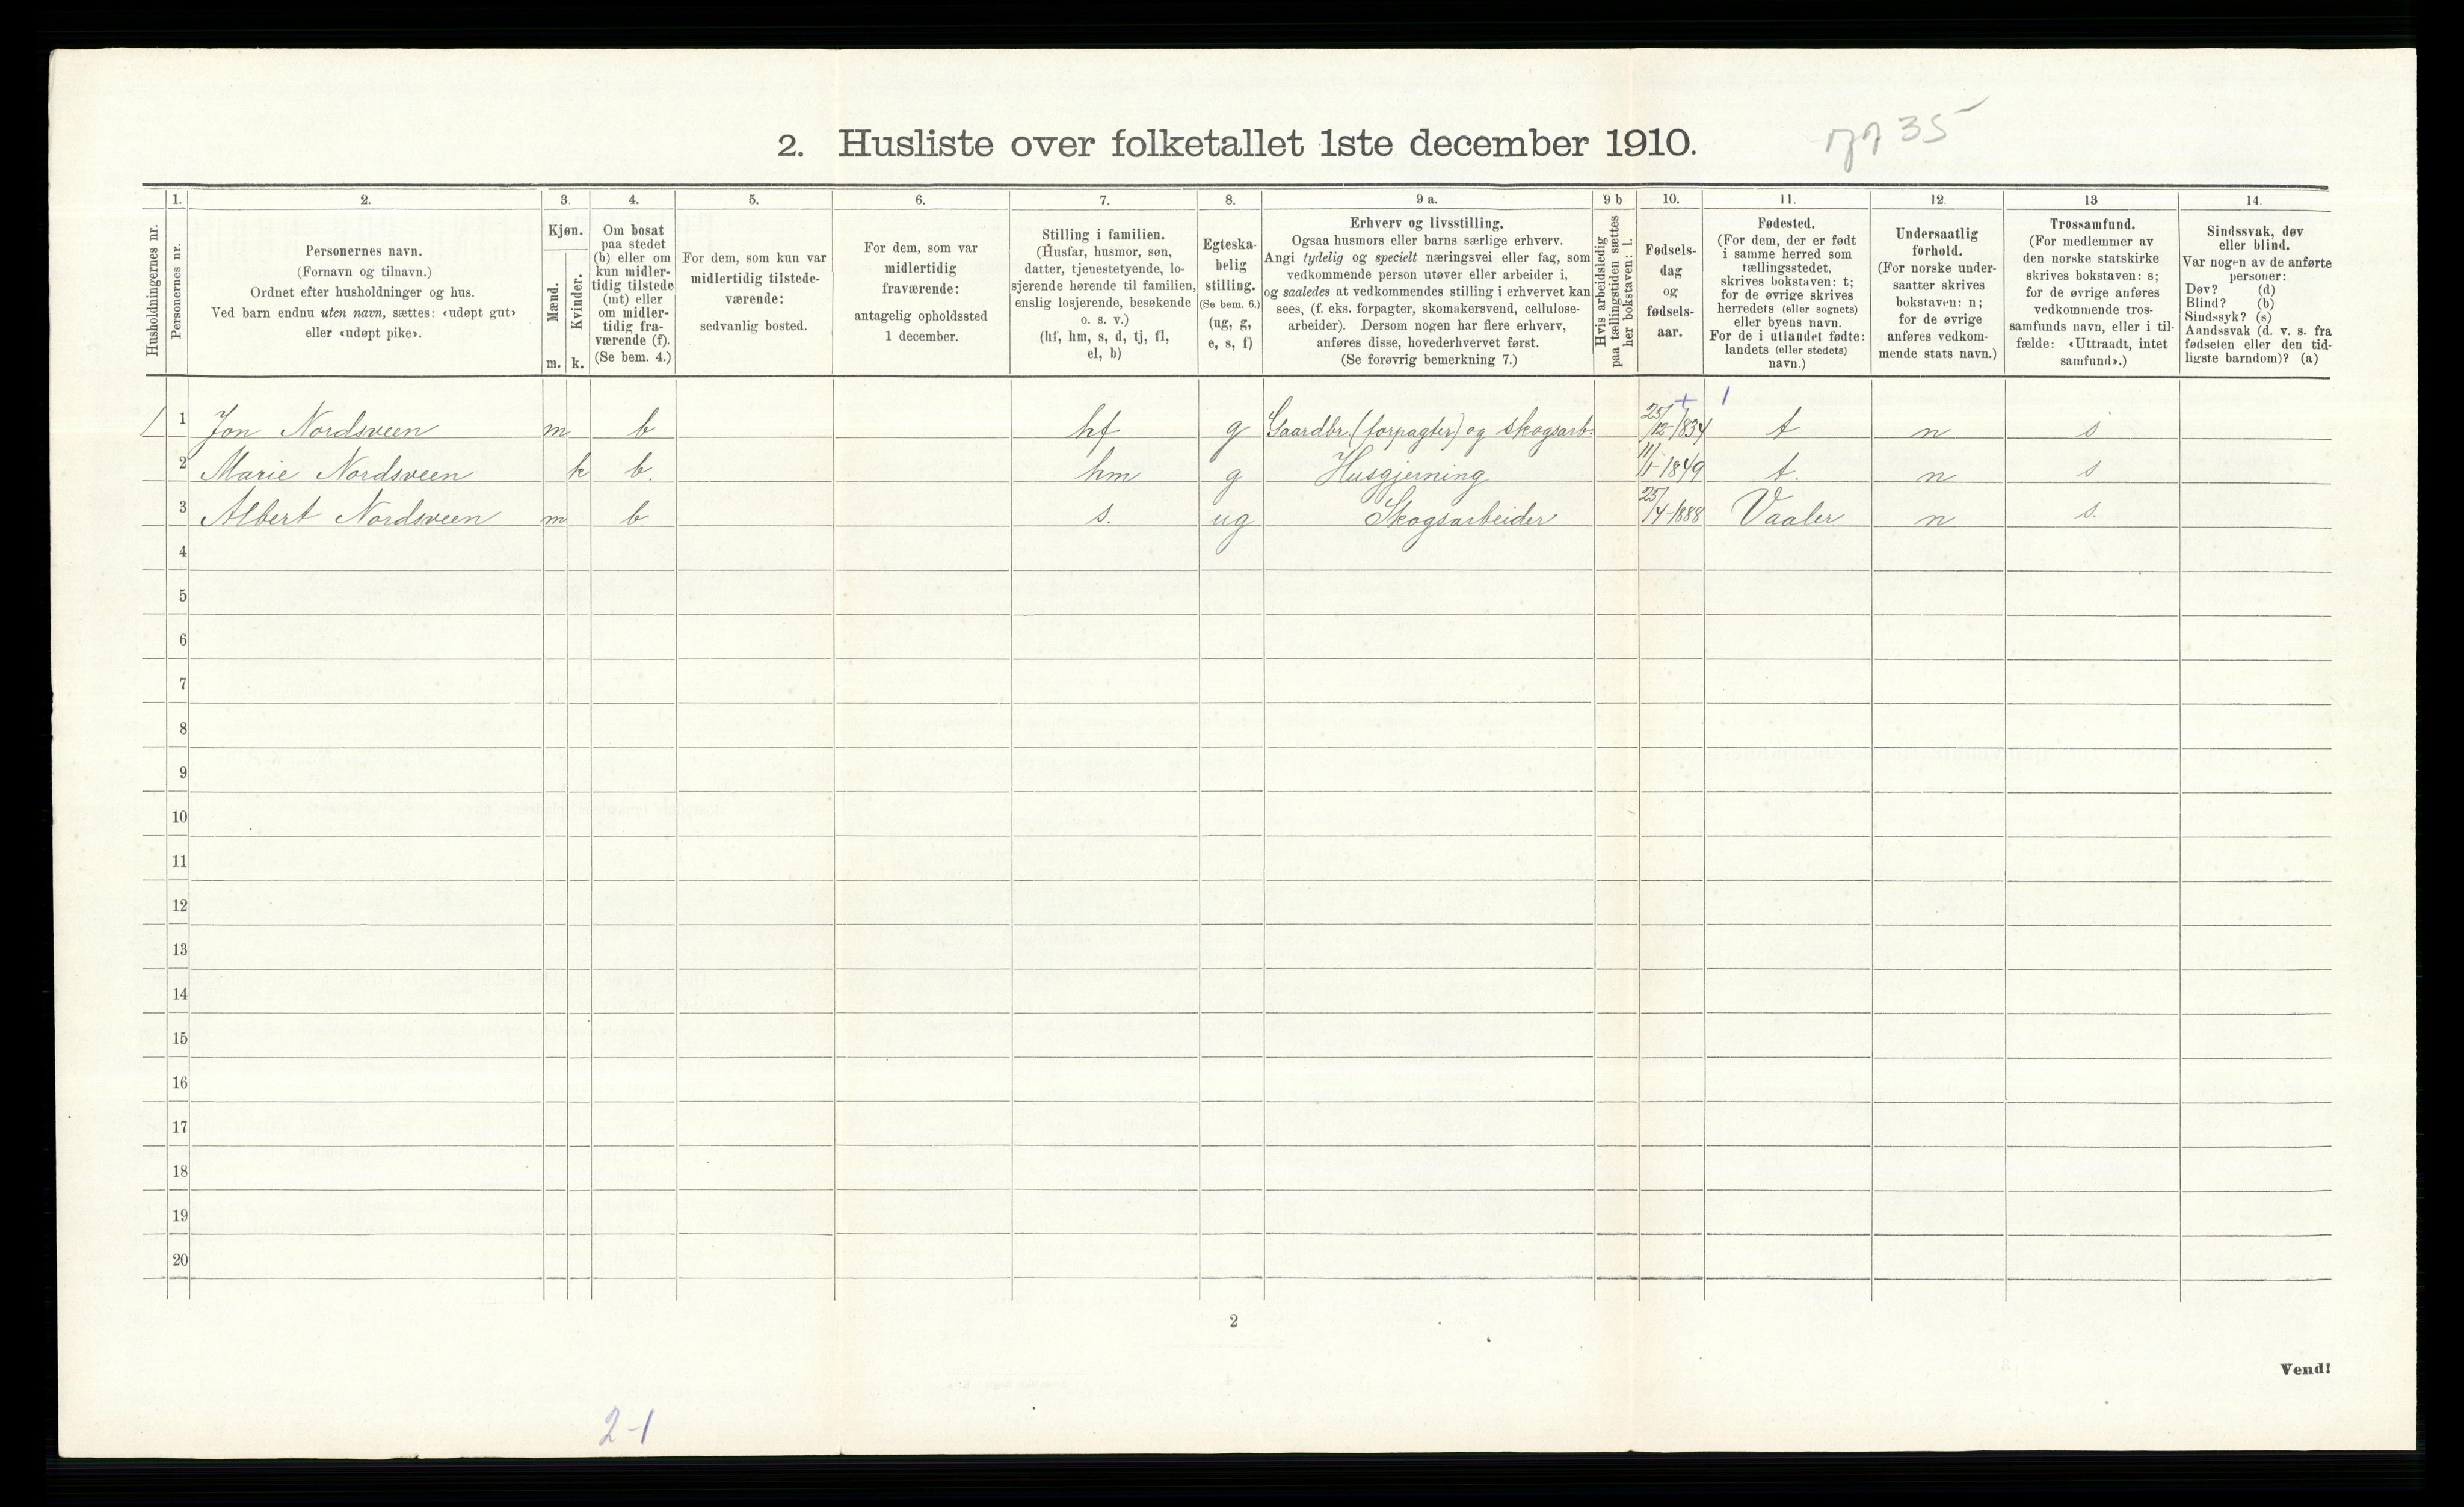 2. Husliste over folketallet 1ste december 1910.
35
1. 2. 3. 4. 5. 6. 7. 8. 9 a. 9 b 10. 11. 12. 13 14.
Husholdningernes nr.
Personernes nr.
Personernes navn.
(Fornavn og tilnavn.)
Ordnet efter husholdninger og hus.
Ved barn endnu uten navn, sættes: «udøpt gut»
eller «udøpt pike».
Kjøn.
Mænd.
Kvinder.
m. k.
Om bosat
paa stedet
(b) eller om
kun midler-
tidig tilstede
(mt) eller
om midler-
tidig fra-
værende (f).
(Se bem. 4.)
For dem, som kun var
midlertidig tilstede-
værende:
sedvanlig bosted.
For dem, som var
midlertidig
fraværende:
antagelig opholdssted
1 december.
Stilling i familien.
(Husfar, husmor, søn,
datter, tjenestetyende, lo-
sjerende hørende til familien,
enslig losjerende, besøkende
o. s. v.)
(hf, hm, s, d, tj, fl,
el, b)
Egteska-
belig
stilling.
(Se bem. 6.)
(ug, g,
e, s, f)
Erhverv og livsstilling.
Ogsaa husmors eller barns særlige erhverv.
Angi tydelig og specielt næringsvei eller fag, som
vedkommende person utøver eller arbeider i,
og saaledes at vedkommendes stilling i erhvervet kan
sees, (f. eks. forpagter, skomakersvend, cellulose-
arbeider). Dersom nogen har flere erhverv,
anføres disse, hovederhvervet først.
(Se forøvrig bemerkning 7.)
Hvis arbeidsledig
paa tællingstiden sættes
her bokstaven: l.
Fødsels-
dag
og
fødsels-
aar.
Fødested.
(For dem, der er født
i samme herred som
tællingsstedet,
skrives bokstaven: t;
for de øvrige skrives
herredets (eller sognets)
eller byens navn.
For de i utlandet fødte:
landets (eller stedets)
navn.)
Undersaatlig
forhold.
(For norske under-
saatter skrives
bokstaven: n;
for de øvrige
anføres vedkom-
mende stats navn.)
Trossamfund.
(For medlemmer av
den norske statskirke
skrives bokstaven: s;
for de øvrige anføres
vedkommende tros-
samfunds navn, eller i til-
fælde: «Uttraadt, intet
samfund».)
Sindssvak, døv
eller blind.
Var nogen av de anførte
personer:
Døv? (d)
Blind? (b)
Sindssyk? (s)
Aandssvak (d. v. s. fra
fødselen eller den tid-
ligste barndom)? (a)
+ 1
1 1 Jon Nordsveen m b hf g Gaardbr. (forpagter) og skogsarb. 25/12-1834 t n s
2 Marie Nordsveen k b. hm g Husgjerning 11/1-1849 t. n s
3 Albert Nordsveen m b s. ug Skogsarbeider 25/4-1888 Vaaler n s.
4
5
6
7
8
9
10
11
12
13
14
15
16
17
18
19
20
2
Vend!
2-1